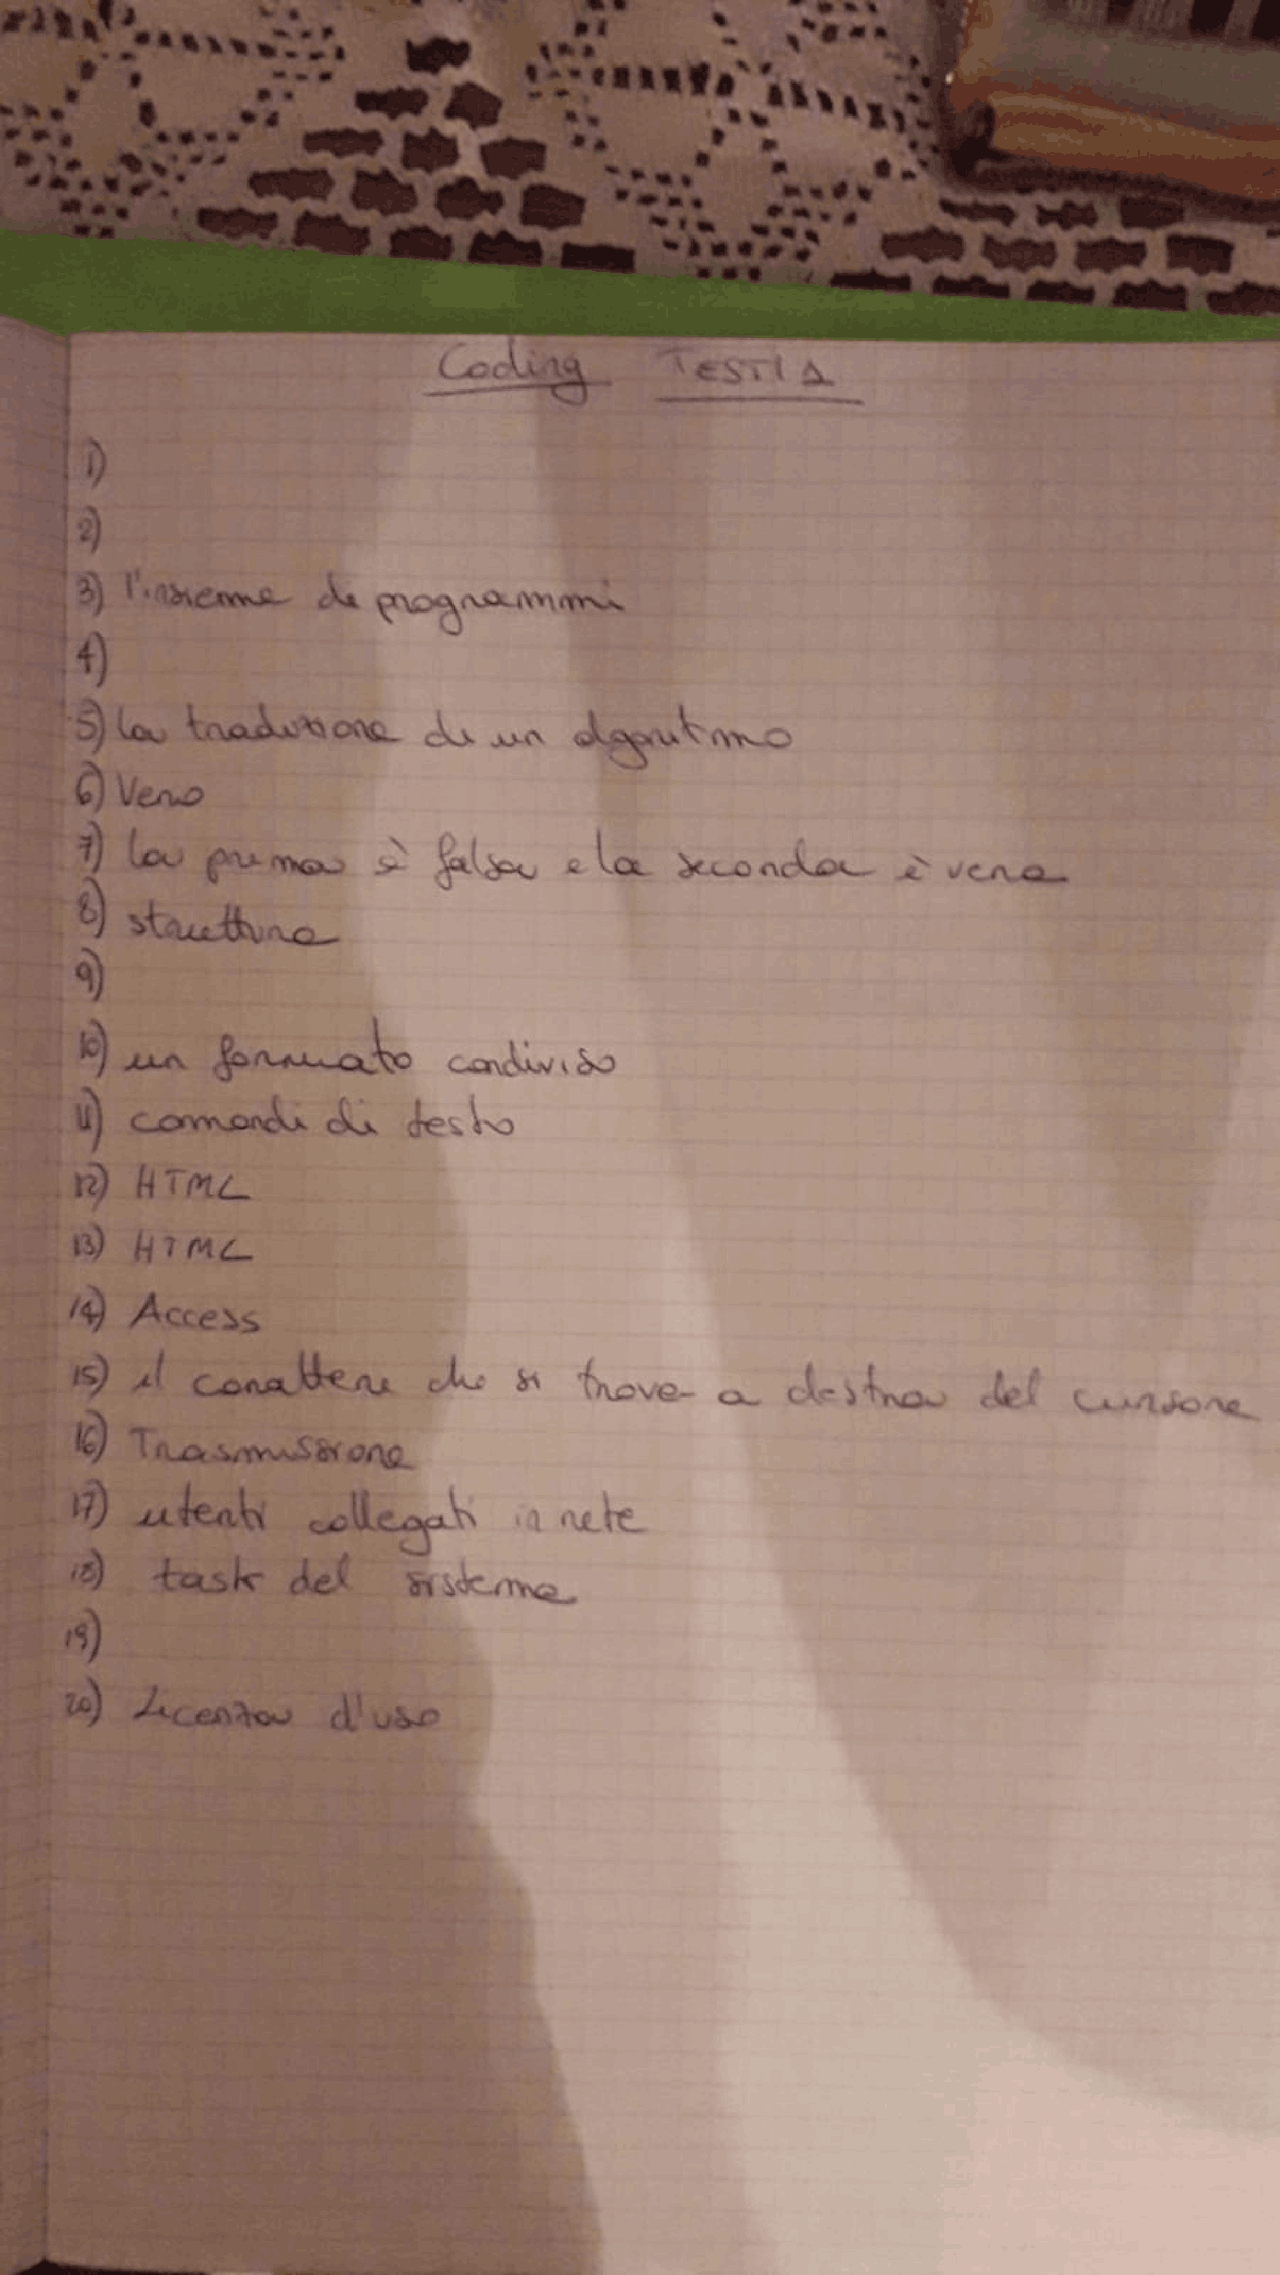 Coding TEST 1
1)
2)
3) l'insieme di programmi
4)
5) la traduzione di un algoritmo
6) Vero
7) la prima è falsa e la seconda è vera
8) struttura
9)
10) un formato condiviso
11) comandi di testo
12) HTML
13) HTML
14) Access
15) il carattere che si trova a destra del cursore
16) Trasmissione
17) utenti collegati in rete
18) task del sistema
19)
20) Licenza d'uso